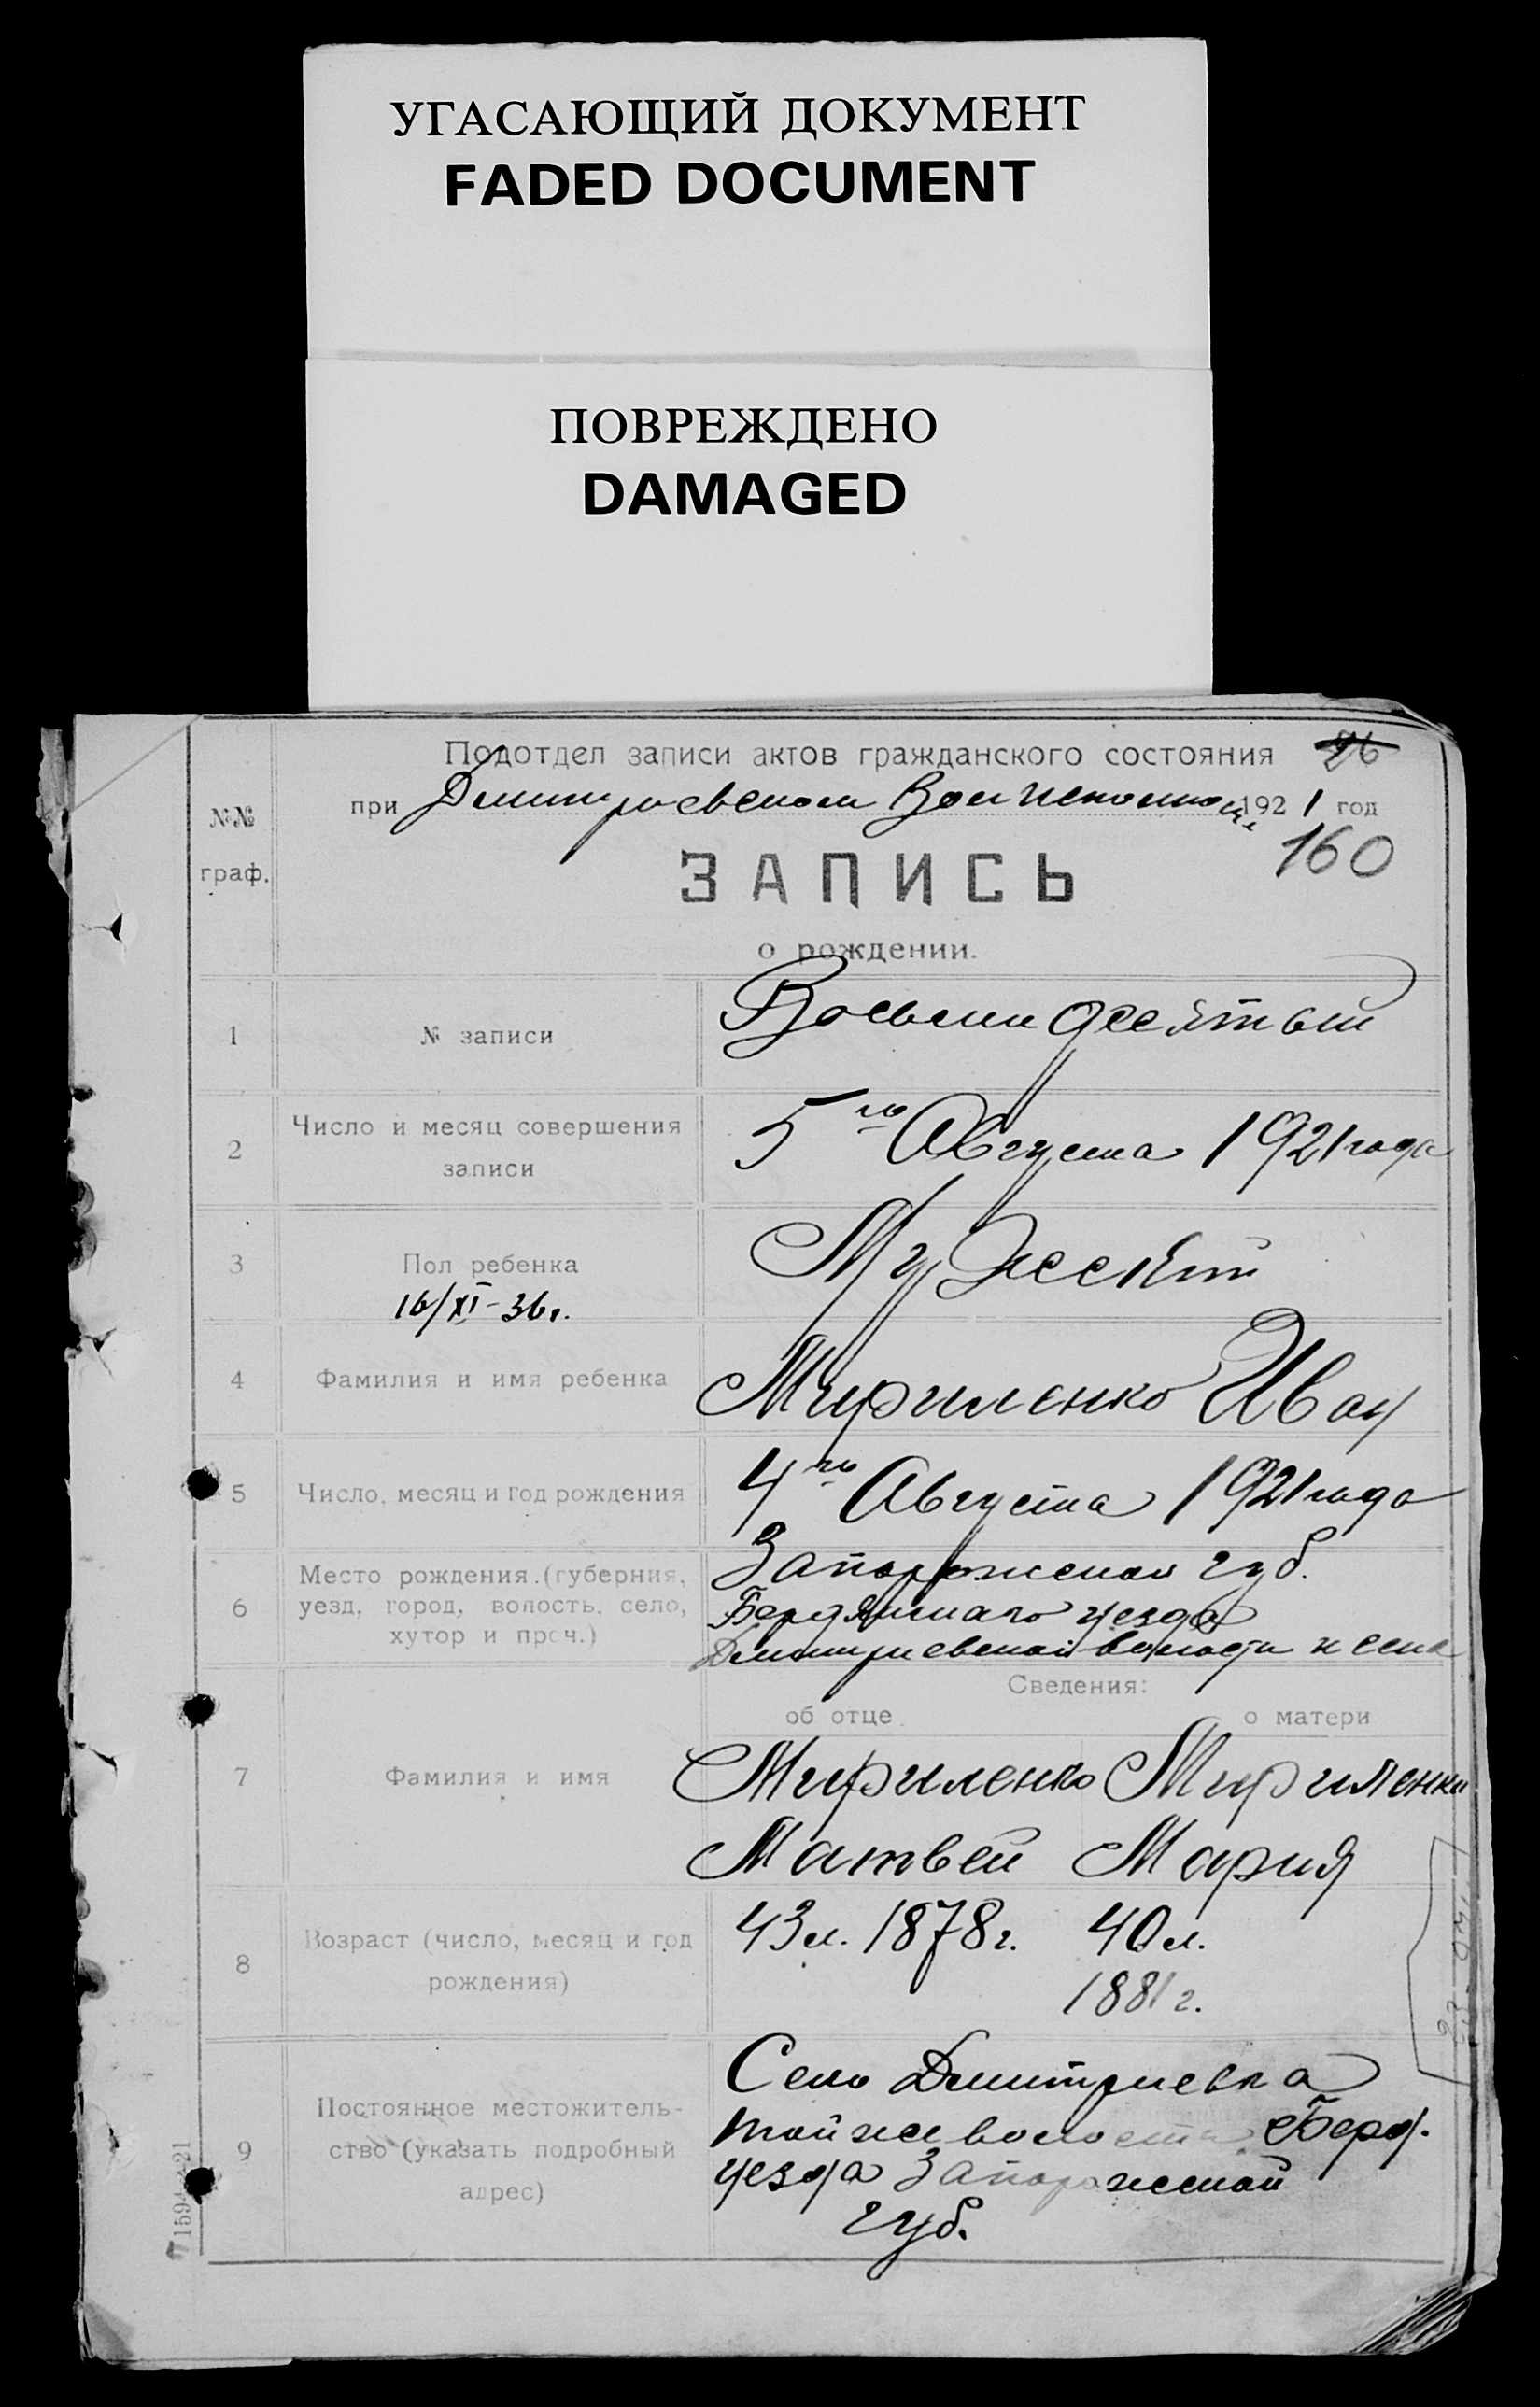 УГАСАЮЩИЙ ДОКУМЕНТ
FADED DOCUMENT
ПОВРЕЖДЕНО
DAMAGED
Подотдел записи актов гражданского состояния
96
при Дмитриевском Волисполкоме 1921 год
№№ граф.
160
ЗАПИСЬ
о рождении.
1 № записи Восьмидесятый
2 Число и месяц совершения записи 5го Августа 1921 года
3 Пол ребенка Мужеский
16/XI-36г.
4 Фамилия и имя ребенка Мириленко Иван
5 Число, месяц и год рождения 4го Августа 1921 года
6 Место рождения.(губерния, Запорожская губ.
уезд, город, волость, село, Бердянскаго уезда
хутор и проч.) Дмитриевской волости и села
Сведения:
об отце о матери
7 Фамилия и имя Мириленко Мириленко
Матвей Мария
8 Возраст (число, месяц и год рождения) 43 л. 1878 г. 40 л.
1881 г.
9 Постоянное местожитель- Село Дмитриевка
ство (указать подробный той же волости Берд.
адрес) уезда Запорожской
губ.